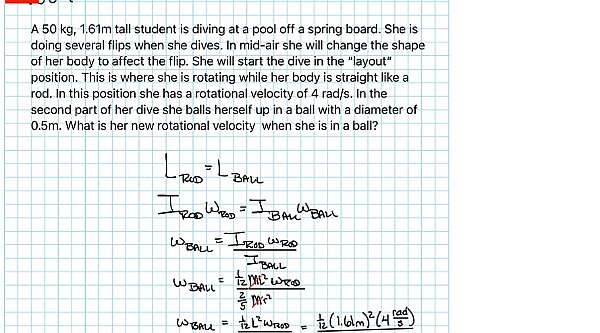 A 50 kg, 1.61m tall student is diving at a pool off a spring board. She is
doing several flips when she dives. In mid-air she will change the shape
of her body to affect the flip. She will start the dive in the "layout"
position. This is where she is rotating while her body is straight like a
rod. In this position she has a rotational velocity of 4 rad/s. In the
second part of her dive she balls herself up in a ball with a diameter of
0.5m. What is her new rotational velocity when she is in a ball?
L ROD = L BALL
I ROD ω ROD = I BALL ω BALL
ω BALL = I ROD ω ROD / I BALL
ω BALL = 1/12 ML² ω ROD / 2/5 Mr²
ω BALL = 1/12 L² ω ROD = 1/12 (1.61m)² (4 rad/s)